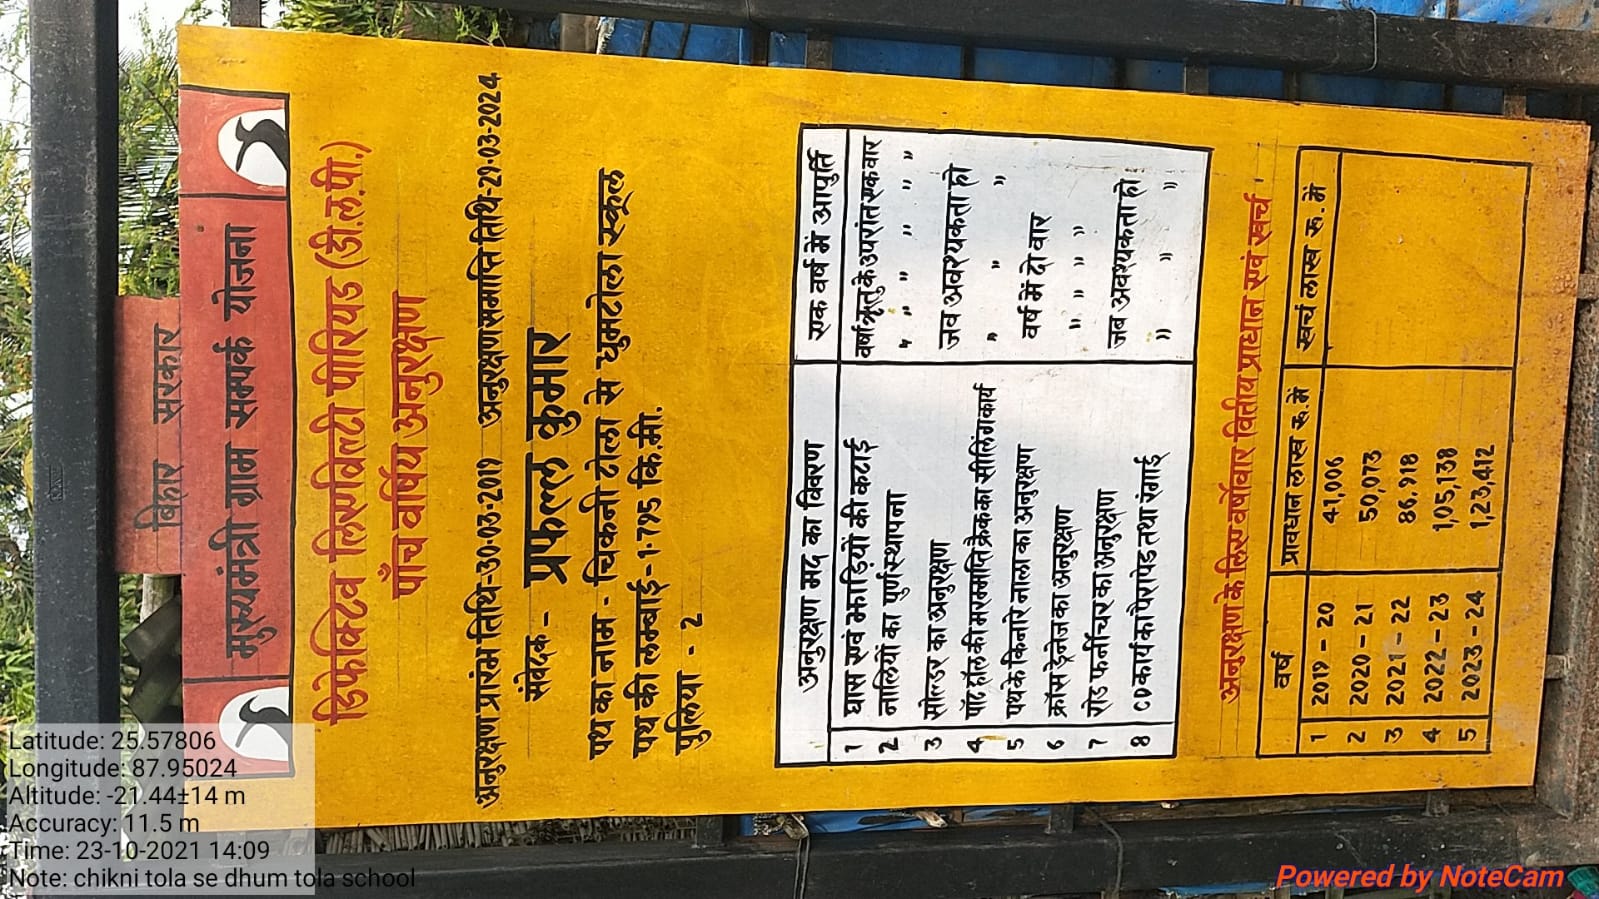 बिहार सरकार
मुख्यमंत्री ग्राम सम्पर्क योजना
डिफेक्टिव लिएविल्टी पीरियड (डी.ल.पी.)
पाँच वर्षिय अनुरक्षण
अनुरक्षण प्रारंभ तिथि-30-03-2019 अनुरक्षण समाप्ति तिथि-29-03-2024
संवेदक - प्रफल्ल कुमार
पथ का नाम - चिकनी टोला से धुमटोला स्कूल
पथ की लम्बाई - 1.795 कि.मी.
पुलिया - 2
अनुरक्षण मद का विवरण एक वर्ष में आपुर्ति
1 घास एवं झाड़ियों की कटाई वर्षा ऋतु के उपरांत एक वार
2 नालियों का पुर्णस्थापना " " " " "
3 सोल्डर का अनुरक्षण जव अवश्यकता हो
4 पॉट हॉल की मारम्मति क्रैक का सीलिंग कार्य " " "
5 पथ के किनारे नाला का अनुरक्षण वर्ष में दो वार
6 क्रॉस ड्रेनेज का अनुरक्षण " " " "
7 रोड फर्नीचर का अनुरक्षण जव अवश्यकता हो
8 CD कार्य का पैरापेड तथा रंगाई " " " "
अनुरक्षण के लिए वर्षोवार वितीय प्राधान एवं खर्च
वर्ष प्रावधान लाख रु. में खर्च लाख रु. में
1 2019 - 20 41,006
2 2020 - 21 50,073
3 2021 - 22 86.918
4 2022 - 23 1,05,138
5 2023 - 24 1,23,412
Latitude: 25.57806
Longitude: 87.95024
Altitude: -21.44±14 m
Accuracy: 11.5 m
Time: 23-10-2021 14:09
Note: chikni tola se dhum tola school
Powered by NoteCam